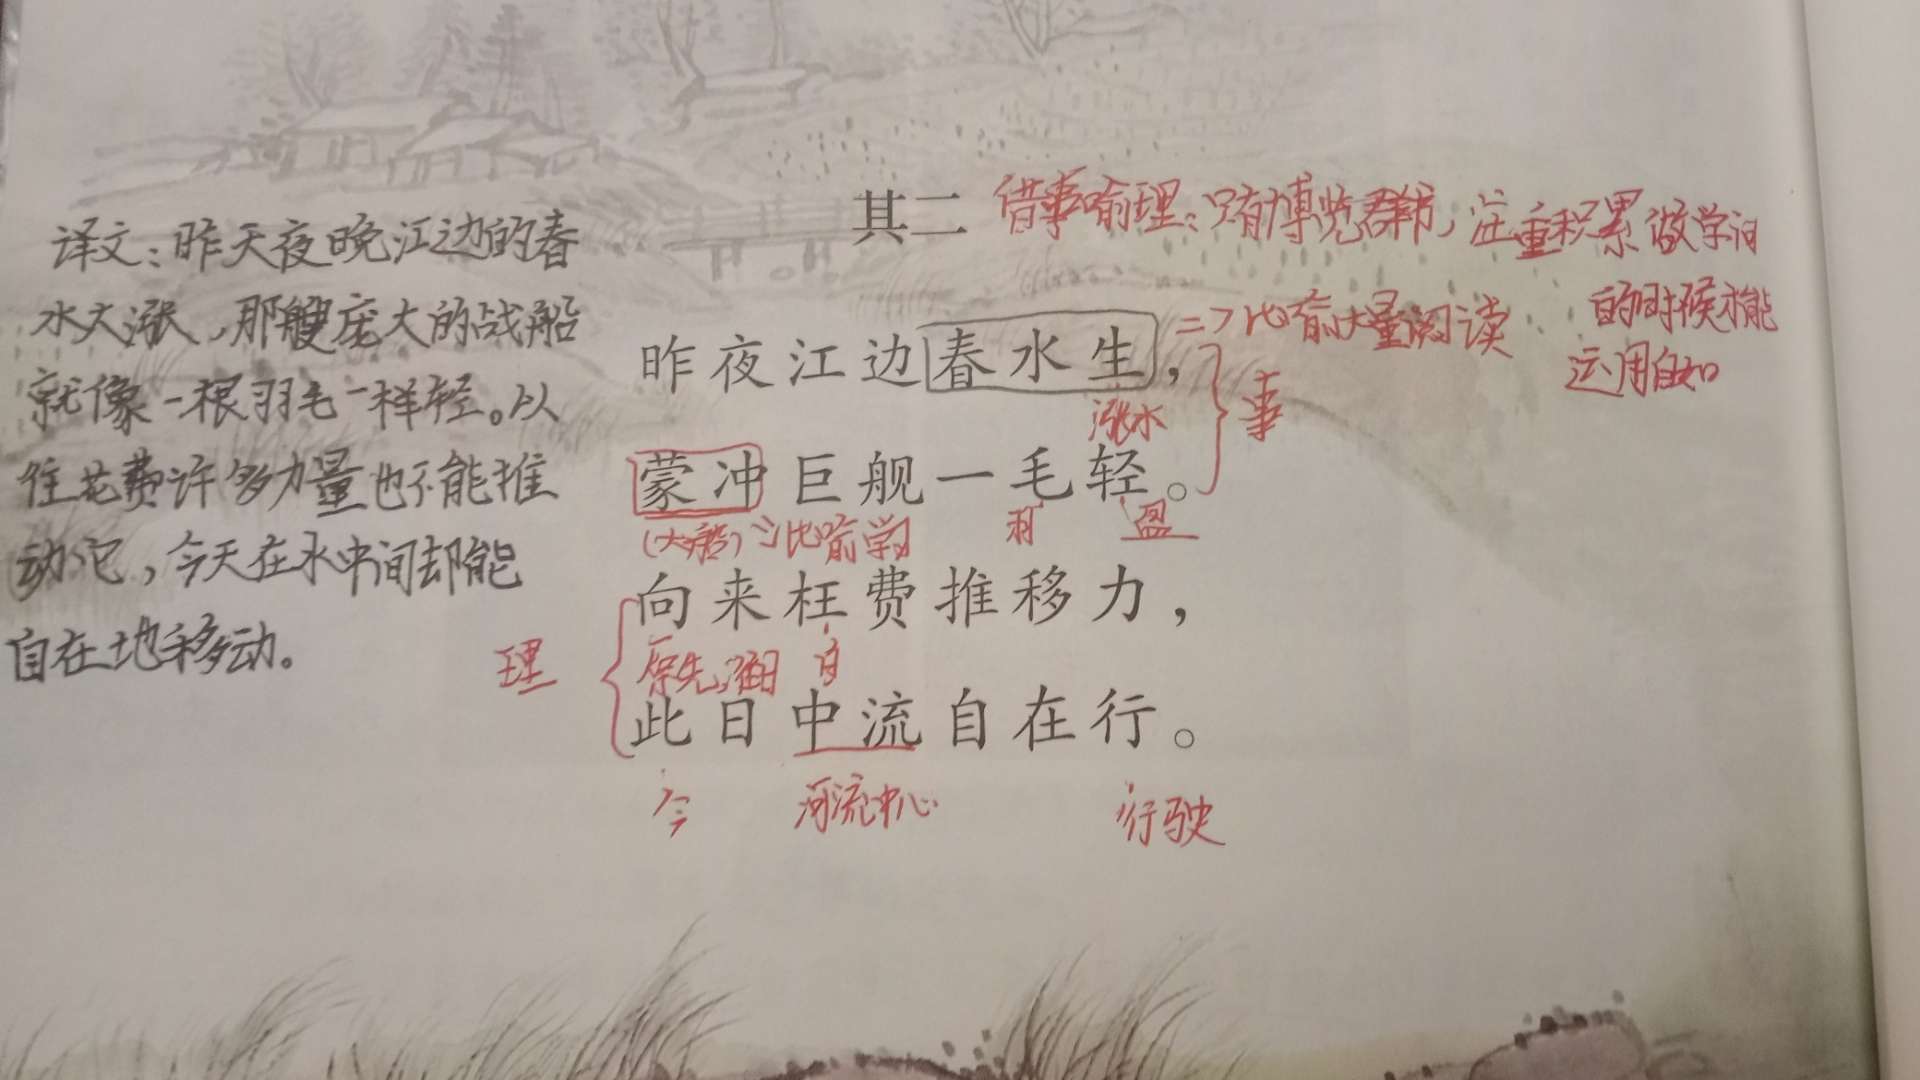 其二
借事喻理：只有博览群书，注重积累做学问
的时候才能
运用自如
昨夜江边春水生，
=>比喻大量阅读
涨水
事
蒙冲巨舰一毛轻。
(大船)=>比喻学问
羽
盈
向来枉费推移力，
理
原先，
白
此日中流自在行。
今
河流中心
行驶
译文：昨天夜晚江边的春
水大涨，那艘庞大的战船
就像一根羽毛一样轻。以
往花费许多力量也不能推
动它，今天在水中间却能
自在地移动。